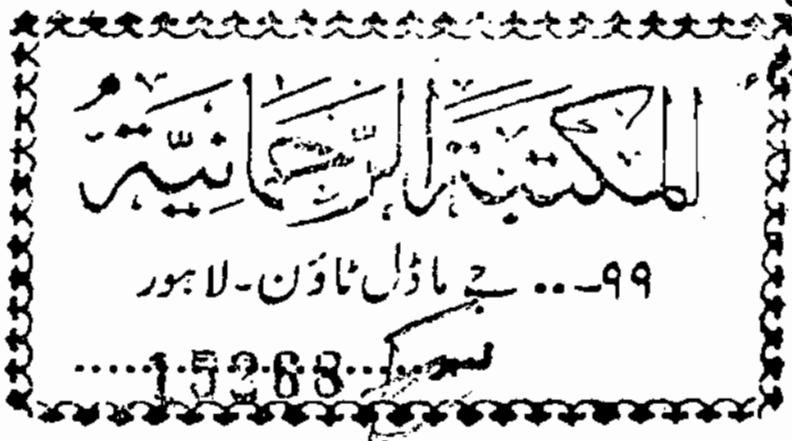 المکتبۃ الرحمانیۃ
۹۹... جے ماڈل ٹاؤن۔لاہور
نمبر......15268......